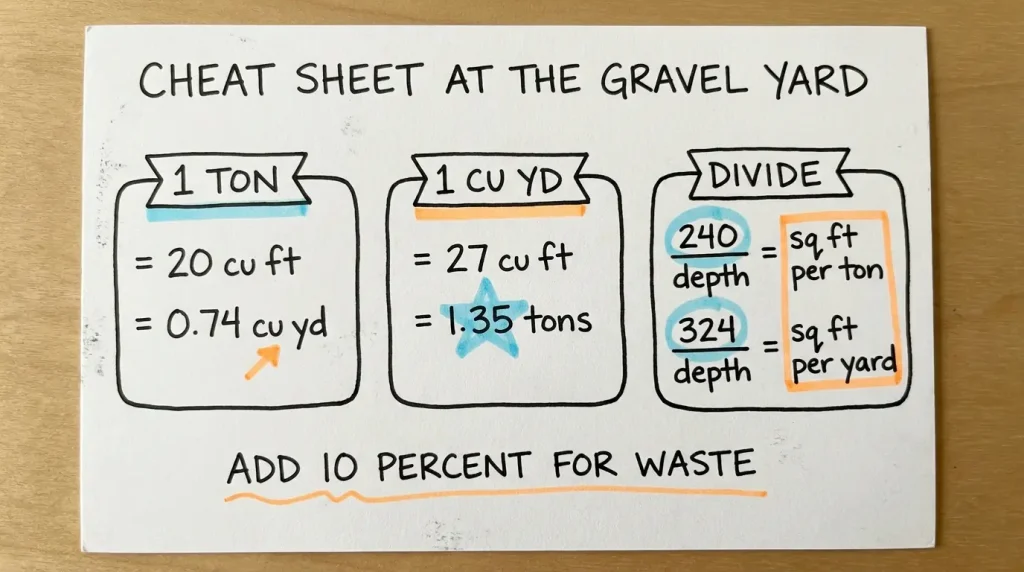 CHEAT SHEET AT THE GRAVEL YARD
1 TON
= 20 cu ft
= 0.74 cu yd
1 CU YD
= 27 cu ft
= 1.35 tons
DIVIDE
240
depth
= sq ft
per ton
324
depth
= sq ft
per yard
ADD 10 PERCENT FOR WASTE